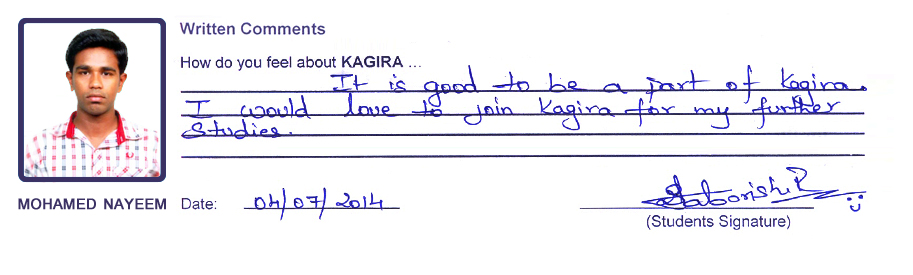 Written Comments
How do you feel about KAGIRA ...
It is good to be a part of Kagira.
I would love to join Kagira for my further
studies.
MOHAMED NAYEEM Date: 04/07/2014
(Students Signature)